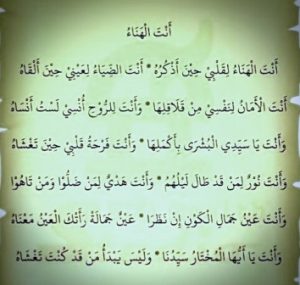 أَنْتَ الْهَنَاءُ
أَنْتَ الْهَنَاءُ لِقَلْبِيْ حِيْنَ أَذْكُرُهُ * أَنْتَ الضِّيَاءُ لِعَيْنِيْ حِيْنَ أَلْقَاهُ
أَنْتَ الْأَمَانُ لِنَفْسِيْ مِنْ قَلَاقِلِهَا * وَأَنْتَ لِلرُّوْحِ أُنْسِيْ لَسْتُ أَنْسَاهُ
وَأَنْتَ يَا سَيِّدِي الْبُشْرَى بِأَكْمَلِهَا * وَأَنْتَ فَرْحَةُ قَلْبِيْ حِيْنَ تَغْشَاهُ
وَأَنْتَ نُوْرٌ لِمَنْ قَدْ طَالَ لَيْلُهُمْ * وَأَنْتَ هَدْيٌ لِمَنْ ضَلُّوْا وَمَنْ تَاهُوْا
وَأَنْتَ عَيْنُ جَمَالِ الْكَوْنِ إِنْ نَظَرَا * عَيْنٌ جَمَالَهُ رَأَتْكَ الْعَيْنَ مَعْنَاهُ
وَأَنْتَ يَا أَيُّهَا الْمُخْتَارُ سَيِّدُنَا * وَلَيْسَ يَبْدَأُ مَنْ قَدْ كُنْتَ تَغْشَاهُ